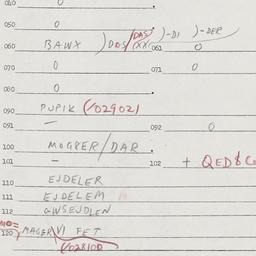 040 0
050 0
060 BAWX )DOS/DAS(XX( )-DI )-DER
061 0
070 0 071 0
080 0
090 PUPIK (/029021
091 — 092 0
100 MOGRER/DAR
101 — 102 + QED
110 EJDELER
111 EJDELEM
112 GWSEJDLEN
120 MAGER VI FET
(/028100